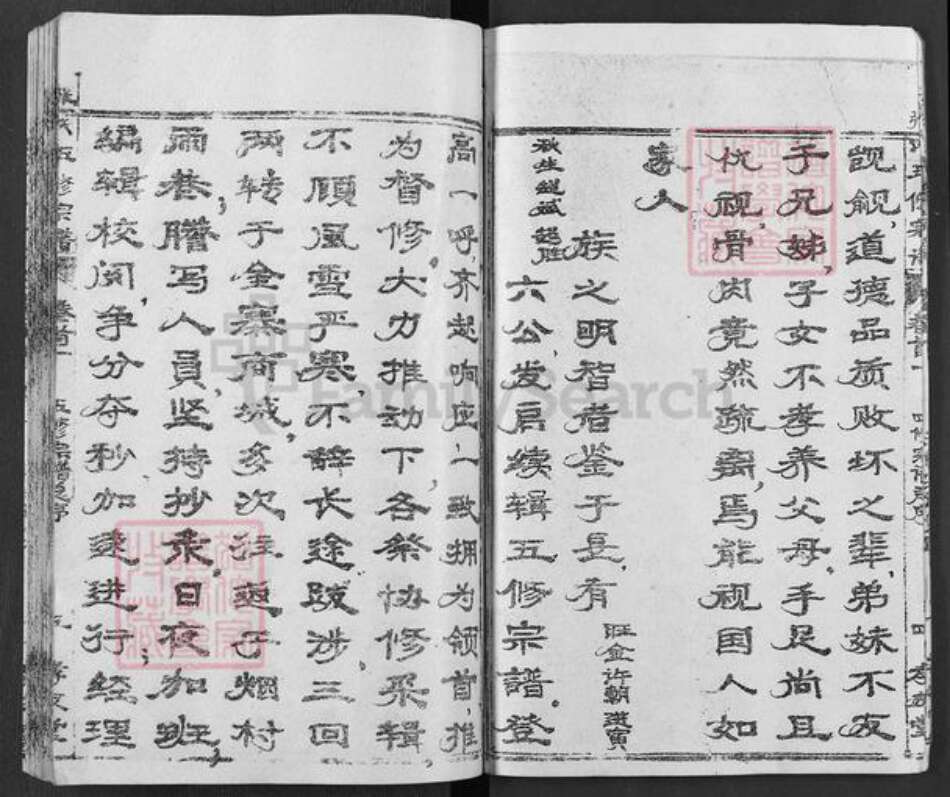 觊觎,道德品质败坏之辈,弟妹不友
于兄姊,子女不孝养父母,手足尚且
仇视,骨肉竟然疏离,焉能视国人如
家人
族之明智者鉴于是,有
旺金许朝进寅
秋生继斌
六公,发启续辑五修宗谱。登
高一呼,齐起响应,一致拥为领首,推
为督修,大力推动下,各祭协修采辑
不顾风雪严寒,不辞长途跋涉,三回
两转于金寨商城,多次往返于烟村
雨巷,誊写人员,坚持抄录,日夜加班,
编辑校阅,争分夺秒加速进行;经理
五修宗谱 卷首一 五修宗谱 孝友堂
FamilySearch